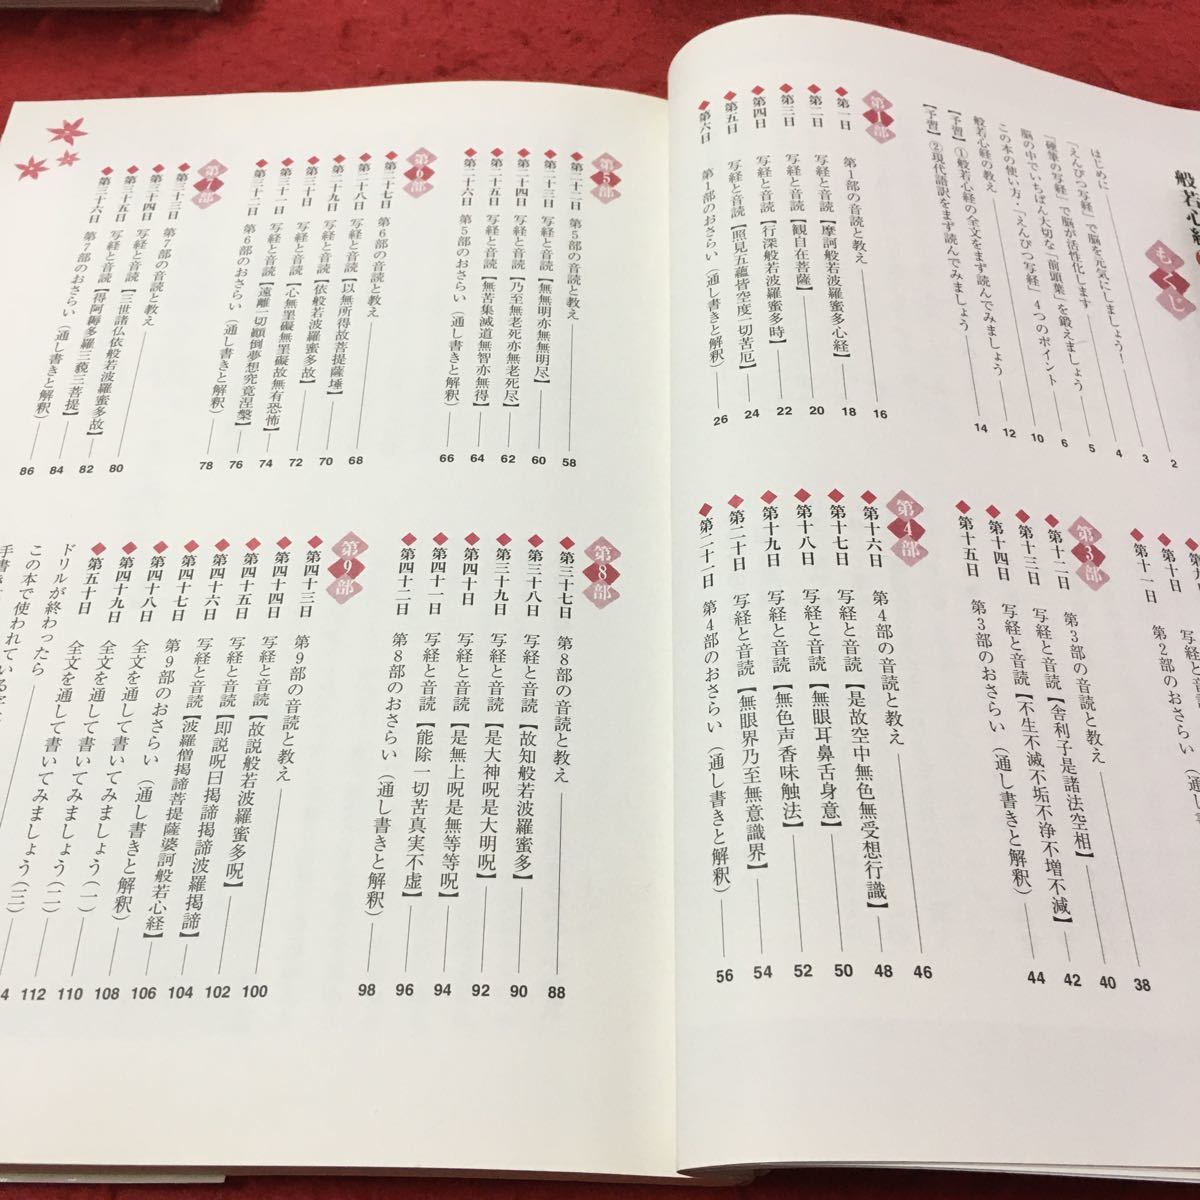 般若心経
もくじ
はじめに 2
「えんぴつ写経」で脳を元気にしましょう! 3
「硬筆の写経」で脳が活性化します 4
脳の中でいちばん大切な「前頭葉」を鍛えましょう 5
この本の使い方・「えんぴつ写経」4つのポイント 6
般若心経の教え 10
【予習】①般若心経の全文をまず読んでみましょう 12
【予習】②現代語訳をまず読んでみましょう 14
第1部
◆第一日 第1部の音読と教え 16
◆第二日 写経と音読【摩訶般若波羅蜜多心経】 18
◆第三日 写経と音読【観自在菩薩】 20
◆第四日 写経と音読【行深般若波羅蜜多時】 22
◆第五日 写経と音読【照見五蘊皆空度一切苦厄】 24
◆第六日 第1部のおさらい(通し書きと解釈) 26
◆第十日 写経と音読
◆第十一日 第2部のおさらい(通し書
第3部
◆第十二日 第3部の音読と教え 38
◆第十三日 写経と音読【舎利子是諸法空相】 40
◆第十四日 写経と音読【不生不滅不垢不浄不増不減】 42
◆第十五日 第3部のおさらい(通し書きと解釈) 44
第4部
◆第十六日 第4部の音読と教え 46
◆第十七日 写経と音読【是故空中無色無受想行識】 48
◆第十八日 写経と音読【無眼耳鼻舌身意】 50
◆第十九日 写経と音読【無色声香味触法】 52
◆第二十日 写経と音読【無眼界乃至無意識界】 54
◆第二十一日 第4部のおさらい(通し書きと解釈) 56
第5部
◆第二十二日 第5部の音読と教え 58
◆第二十三日 写経と音読【無無明亦無無明尽】 60
◆第二十四日 写経と音読【乃至無老死亦無老死尽】 62
◆第二十五日 写経と音読【無苦集滅道無智亦無得】 64
◆第二十六日 第5部のおさらい(通し書きと解釈) 66
第6部
◆第二十七日 第6部の音読と教え 68
◆第二十八日 写経と音読【以無所得故菩提薩埵】 70
◆第二十九日 写経と音読【依般若波羅蜜多故】 72
◆第三十日 写経と音読【心無罣礙無罣礙故無有恐怖】 74
◆第三十一日 写経と音読【遠離一切顚倒夢想究竟涅槃】 76
◆第三十二日 第6部のおさらい(通し書きと解釈) 78
第7部
◆第三十三日 第7部の音読と教え 80
◆第三十四日 写経と音読【三世諸仏依般若波羅蜜多故】 82
◆第三十五日 写経と音読【得阿耨多羅三藐三菩提】 84
◆第三十六日 第7部のおさらい(通し書きと解釈) 86
第8部
◆第三十七日 第8部の音読と教え 88
◆第三十八日 写経と音読【故知般若波羅蜜多】 90
◆第三十九日 写経と音読【是大神呪是大明呪】 92
◆第四十日 写経と音読【是無上呪是無等等呪】 94
◆第四十一日 写経と音読【能除一切苦真実不虚】 96
◆第四十二日 第8部のおさらい(通し書きと解釈) 98
第9部
◆第四十三日 第9部の音読と教え 100
◆第四十四日 写経と音読【故説般若波羅蜜多呪】 102
◆第四十五日 写経と音読【即説呪曰掲諦掲諦波羅掲諦】 104
◆第四十六日 写経と音読【波羅僧掲諦菩提薩婆訶般若心経】 106
◆第四十七日 第9部のおさらい(通し書きと解釈) 108
◆第四十八日 全文を通して書いてみましょう(一) 110
◆第四十九日 全文を通して書いてみましょう(二) 112
◆第五十日 全文を通して書いてみましょう(三) 4
ドリルが終わったら
この本で使われている
手書き